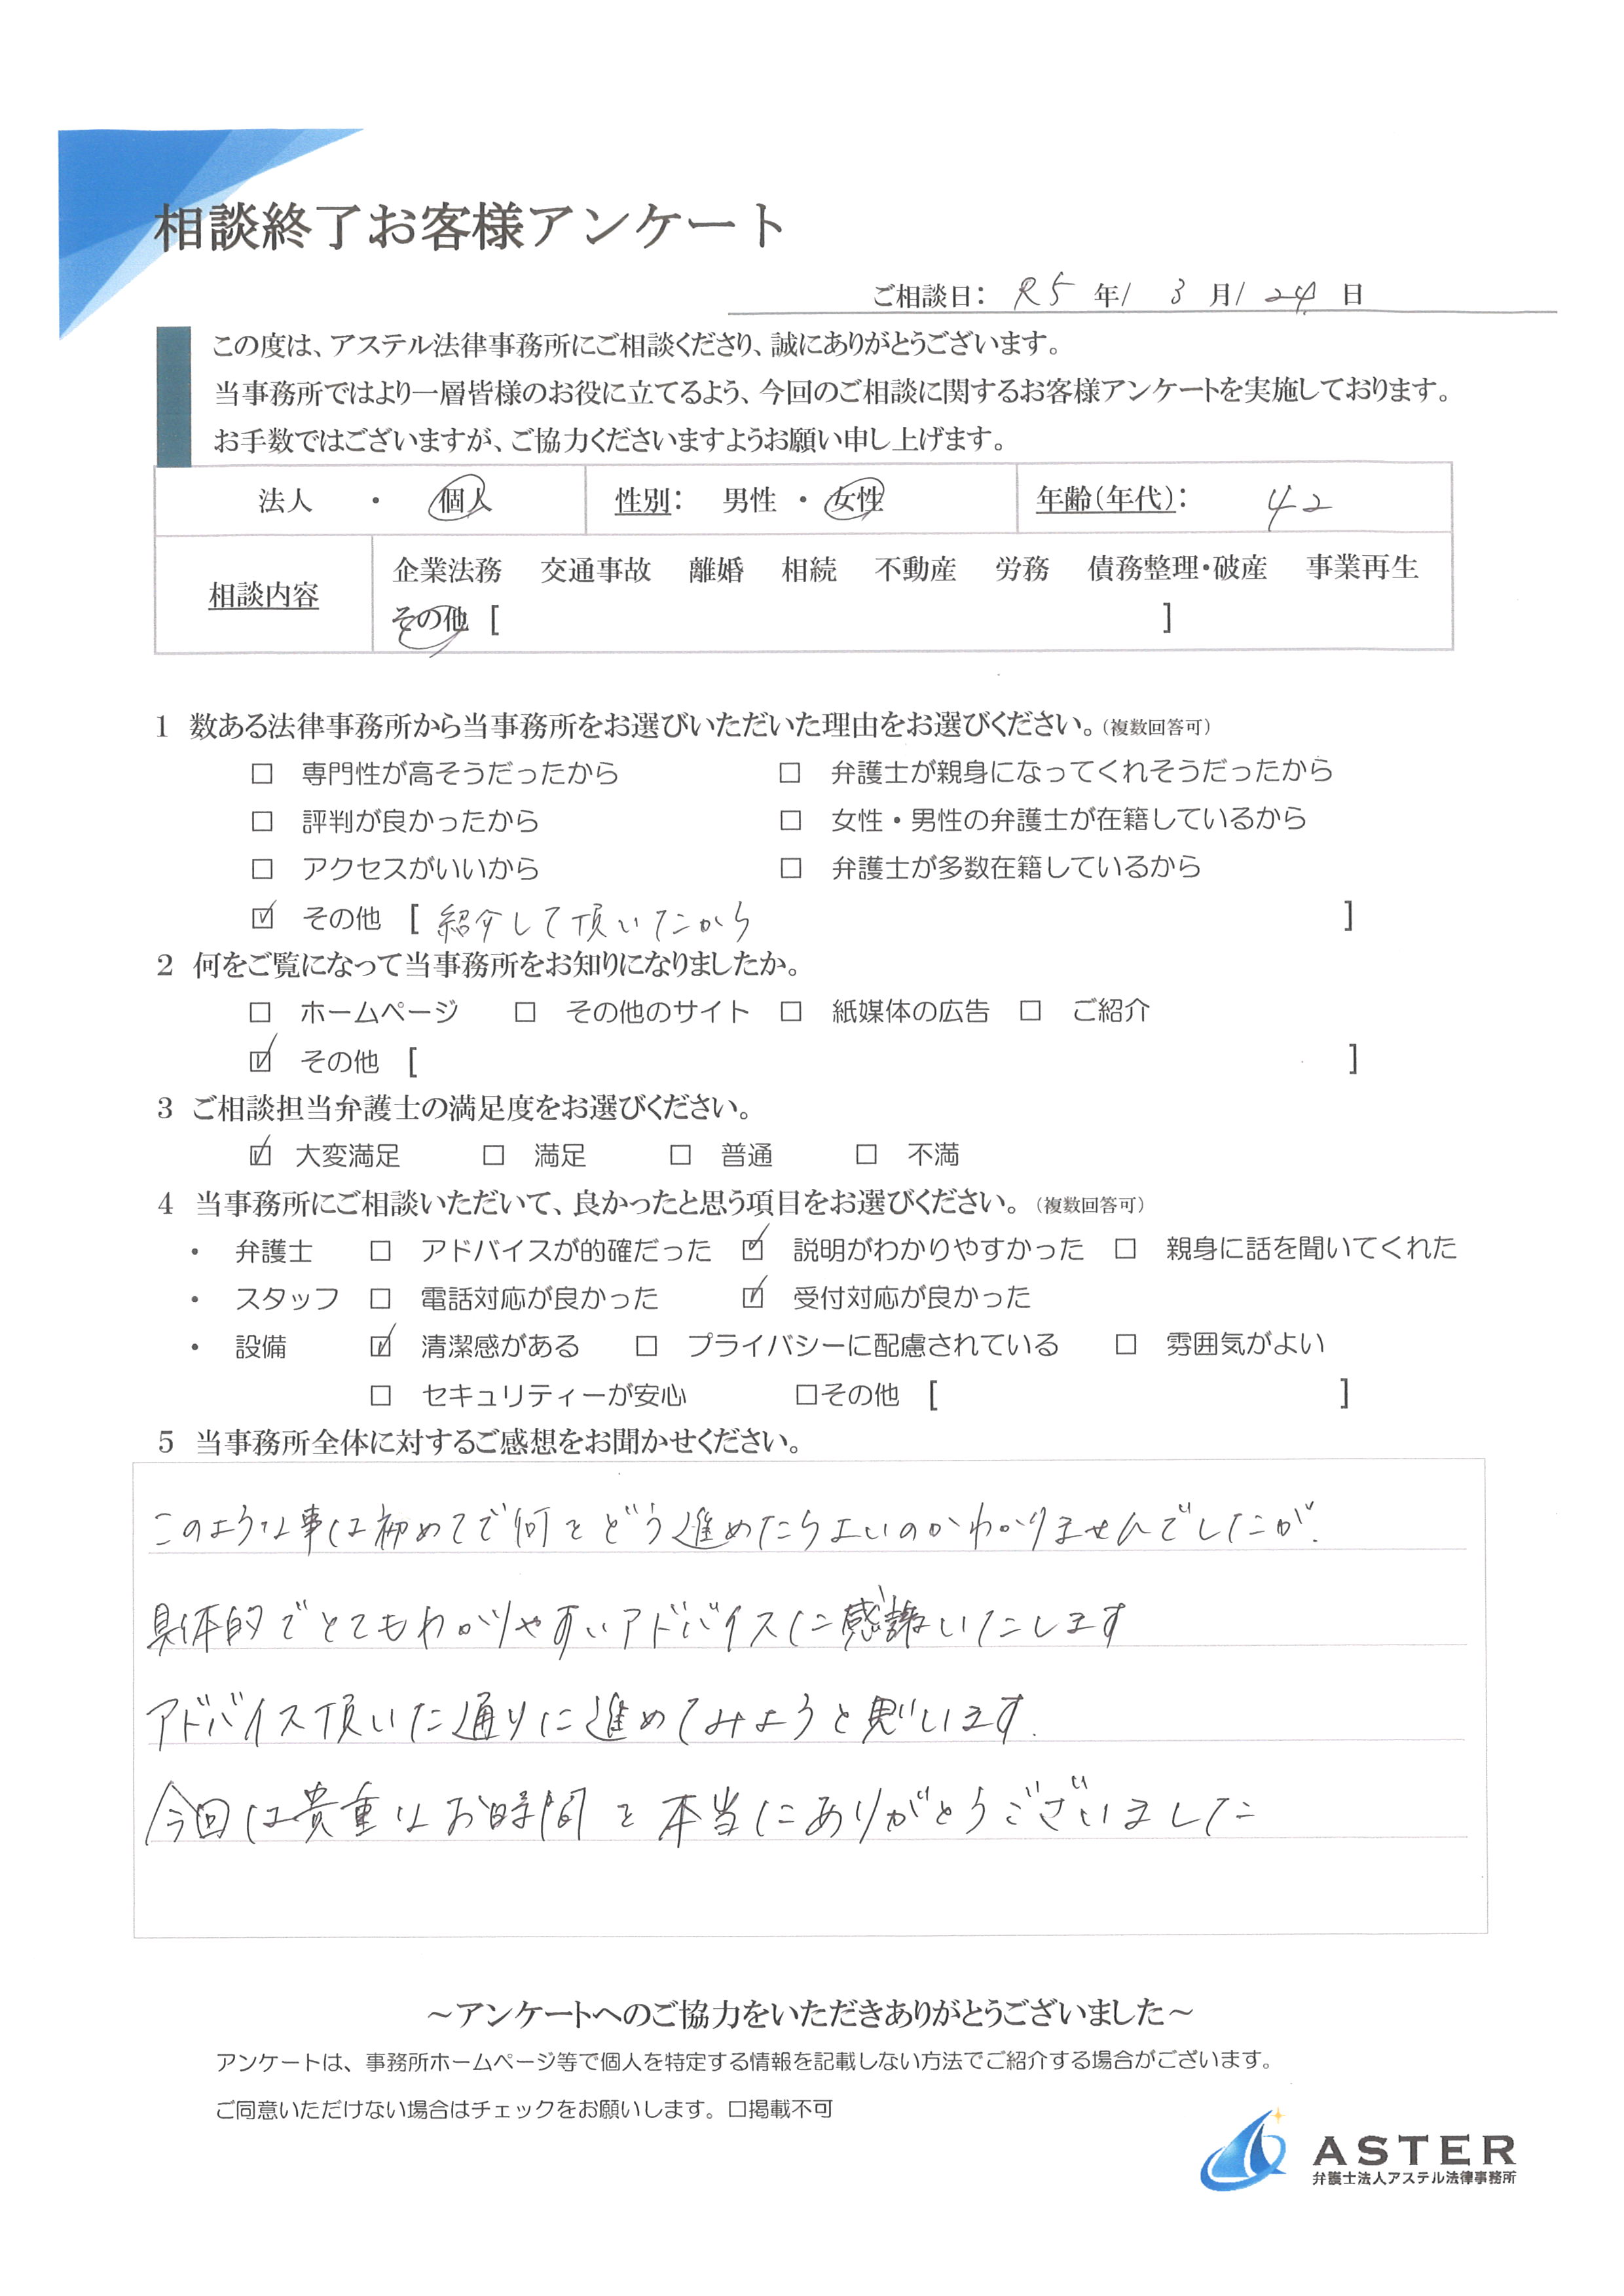 相談終了お客様アンケート
ご相談日: R5 年/ 3 月/ 24 日
この度は、アステル法律事務所にご相談くださり、誠にありがとうございます。
当事務所ではより一層皆様のお役に立てるよう、今回のご相談に関するお客様アンケートを実施しております。
お手数ではございますが、ご協力くださいますようお願い申し上げます。
法人 ・ 個人 性別: 男性 ・ 女性 年齢(年代): 42
相談内容 企業法務 交通事故 離婚 相続 不動産 労務 債務整理・破産 事業再生
その他 [ ]
1 数ある法律事務所から当事務所をお選びいただいた理由をお選びください。(複数回答可)
□ 専門性が高そうだったから □ 弁護士が親身になってくれそうだったから
□ 評判が良かったから □ 女性・男性の弁護士が在籍しているから
□ アクセスがいいから □ 弁護士が多数在籍しているから
☑ その他 [ 紹介して頂いたから ]
2 何をご覧になって当事務所をお知りになりましたか。
□ ホームページ □ その他のサイト □ 紙媒体の広告 □ ご紹介
☑ その他 [ ]
3 ご相談担当弁護士の満足度をお選びください。
☑ 大変満足 □ 満足 □ 普通 □ 不満
4 当事務所にご相談いただいて、良かったと思う項目をお選びください。(複数回答可)
・ 弁護士 □ アドバイスが的確だった ☑ 説明がわかりやすかった □ 親身に話を聞いてくれた
・ スタッフ □ 電話対応が良かった ☑ 受付対応が良かった
・ 設備 ☑ 清潔感がある □ プライバシーに配慮されている □ 雰囲気がよい
□ セキュリティーが安心 □その他 [ ]
5 当事務所全体に対するご感想をお聞かせください。
このような事は初めてで何をどう進めたらよいのかわかりませんでしたが、
具体的でとてもわかりやすいアドバイスに感謝いたします
アドバイス頂いた通りに進めてみようと思います.
今回は貴重なお時間を本当にありがとうございました
～アンケートへのご協力をいただきありがとうございました～
アンケートは、事務所ホームページ等で個人を特定する情報を記載しない方法でご紹介する場合がございます。
ご同意いただけない場合はチェックをお願いします。□掲載不可
ASTER
弁護士法人アステル法律事務所